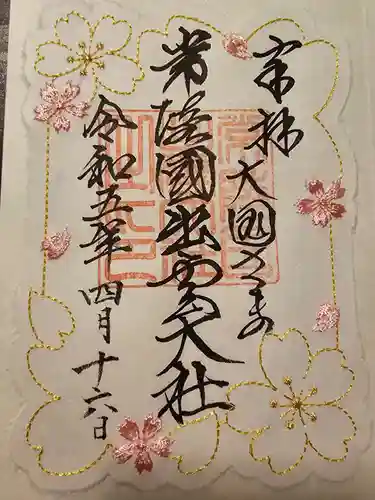 奉拝 大国さま
常陸國出雲大社
令和五年 四月 十六日